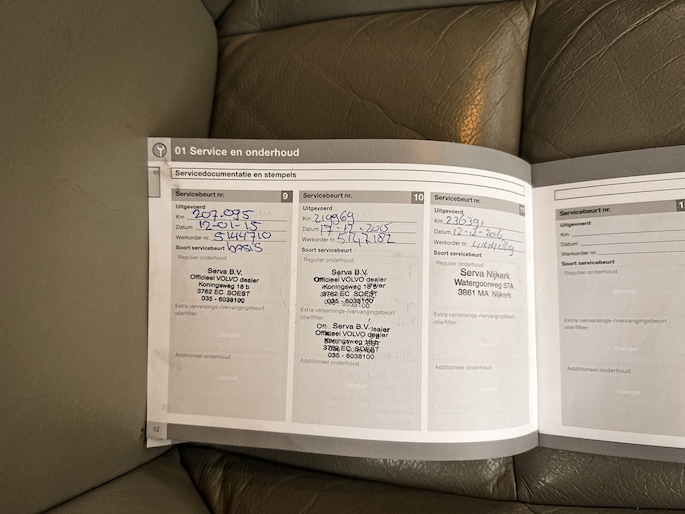 01 Service en onderhoud
Servicedocumentatie en stempels
Servicebeurt nr. 9
Uitgevoerd
Km 207.095
Datum 12-01-15
Werkorder nr. 5144710
Soort servicebeurt basis
Regulier onderhoud
Serva B.V.
Officieel VOLVO dealer
Koningsweg 18 b
3762 EC SOEST
035 - 6038100
Extra verversings-/vervangingsbeurt
olie/filter:
Stempel
Additioneel onderhoud
Stempel
Servicebeurt nr. 10
Uitgevoerd
Km 219969
Datum 17-12-2015
Werkorder nr. 5147182
Soort servicebeurt
Regulier onderhoud
Serva B.V.
Officieel VOLVO dealer
Koningsweg 18
3762 EC SOEST
035 - 6038100
Extra verversings-/vervangingsbeurt
olie/filter:
Serva B.V.
Officieel VOLVO dealer
Koningsweg
3762 EC SOEST
035 - 6038100
Additioneel onderhoud
Stempel
Servicebeurt nr.
Uitgevoerd
Km 236391
Datum 12-12-2016
Werkorder nr.
Soort servicebeurt
Regulier onderhoud
Serva Nijkerk
Watergoorweg 57A
3861 MA Nijkerk
Extra verversings-/vervangingsbeurt
olie/filter:
Stempel
Additioneel onderhoud
Stempel
52
Servicebeurt nr.
Uitgevoerd
Km
Datum:
Werkorder nr.
Soort servicebeurt
Regulier onderhoud
Stempel
Extra verversings-/vervangingsbeurt
olie/filter:
Stempel
Additioneel onderhoud
Stempel